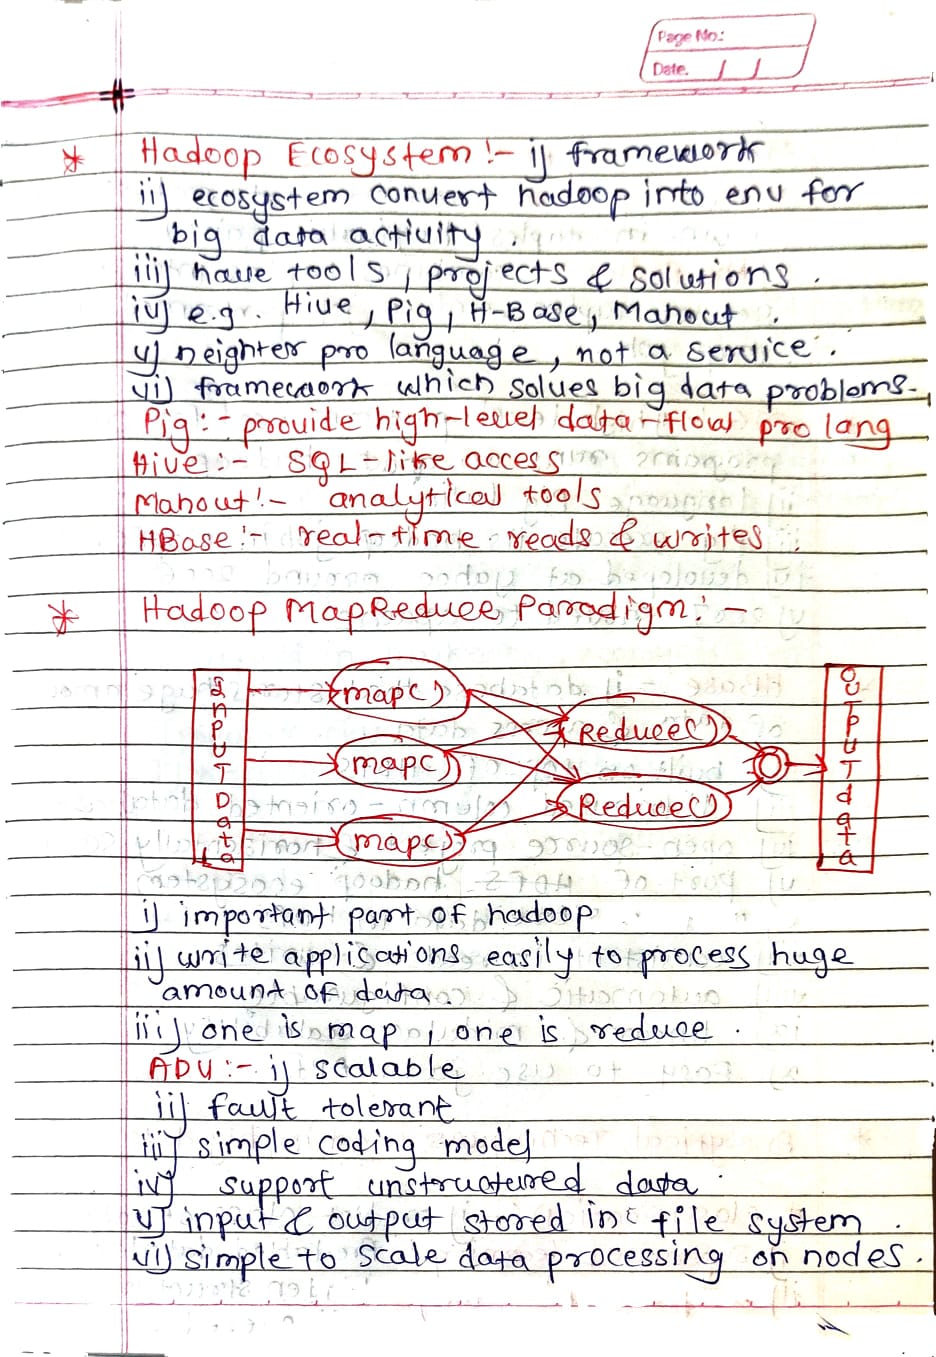 Page No.:
Date. / /
* Hadoop Ecosystem :- i) framework
ii) ecosystem convert hadoop into env for
big data activity.
iii) have tools, projects & solutions.
iv) e.g. Hive, Pig, H-Base, Mahout.
v) neighter pro language, not a service.
vi) framework which solves big data problems.
Pig :- provide high-level data-flow pro lang
Hive :- SQL-like access
Mahout :- analytical tools
HBase :- real-time reads & writes.
* Hadoop MapReduce Paradigm :-
Input Data
map()
map()
map()
Reduce()
Reduce()
Output data
i) important part of hadoop
ii) write applications easily to process huge
amount of data.
iii) one is map, one is reduce.
ADV :- i) scalable
ii) fault tolerant
iii) simple coding model
iv) support unstructured data.
v) input & output stored in file system.
vi) simple to scale data processing on nodes.